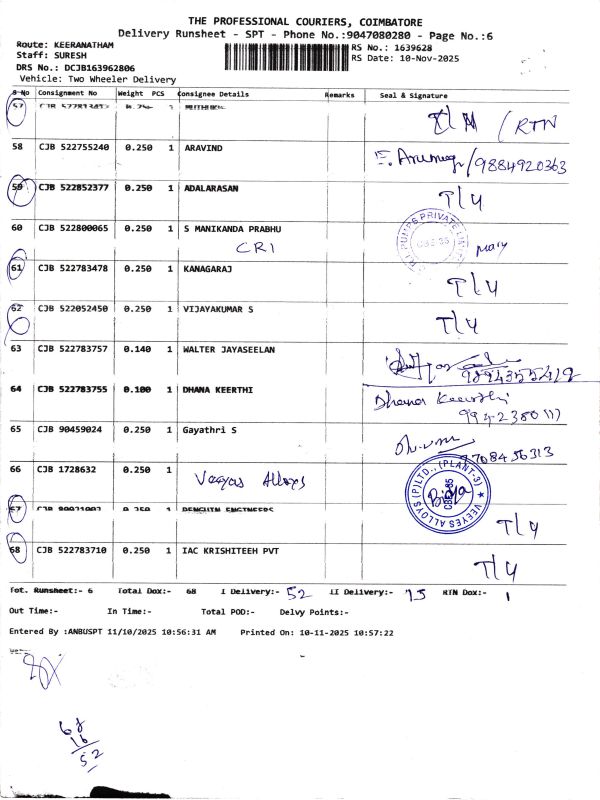 THE PROFESSIONAL COURIERS, COIMBATORE
Delivery Runsheet - SPT - Phone No.:9047080280 - Page No.:6
Route: KEERANATHAM
RS No.: 1639628
Staff: SURESH
RS Date: 10-Nov-2025
DRS No.: DCJB163962806
Vehicle: Two Wheeler Delivery
S No Consignment No Weight PCS Consignee Details Remarks Seal & Signature
57 CJB 0.250 1
/ RTN
58 CJB 522755240 0.250 1 ARAVIND
/9884920363
59 CJB 522852377 0.250 1 ADALARASAN
T/4
60 CJB 522800065 0.250 1 S MANIKANDA PRABHU
CRI
61 CJB 522783478 0.250 1 KANAGARAJ
T/4
62 CJB 522052450 0.250 1 VIJAYAKUMAR S
T/4
63 CJB 522783757 0.140 1 WALTER JAYASEELAN
64 CJB 522783755 0.100 1 DHANA KEERTHI
Dhana Keerthi
65 CJB 90459024 0.250 1 Gayathri S
9708456313
66 CJB 1728632 0.250 1
Veeyes Alloys
VEEYES ALLOYS (P)LTD., (PLANT-3)
67 CJB 0.250 1 PENGUIN ENGINEERS
T/4
68 CJB 522783710 0.250 1 IAC KRISHITEEH PVT
T/4
Tot. Runsheet:- 6 Total Dox:- 68 I Delivery:- 52 II Delivery:- 15 RTN Dox:- 1
Out Time:- In Time:- Total POD:- Delvy Points:-
Entered By :ANBUSPT 11/10/2025 10:56:31 AM Printed On: 10-11-2025 10:57:22
68
16
52